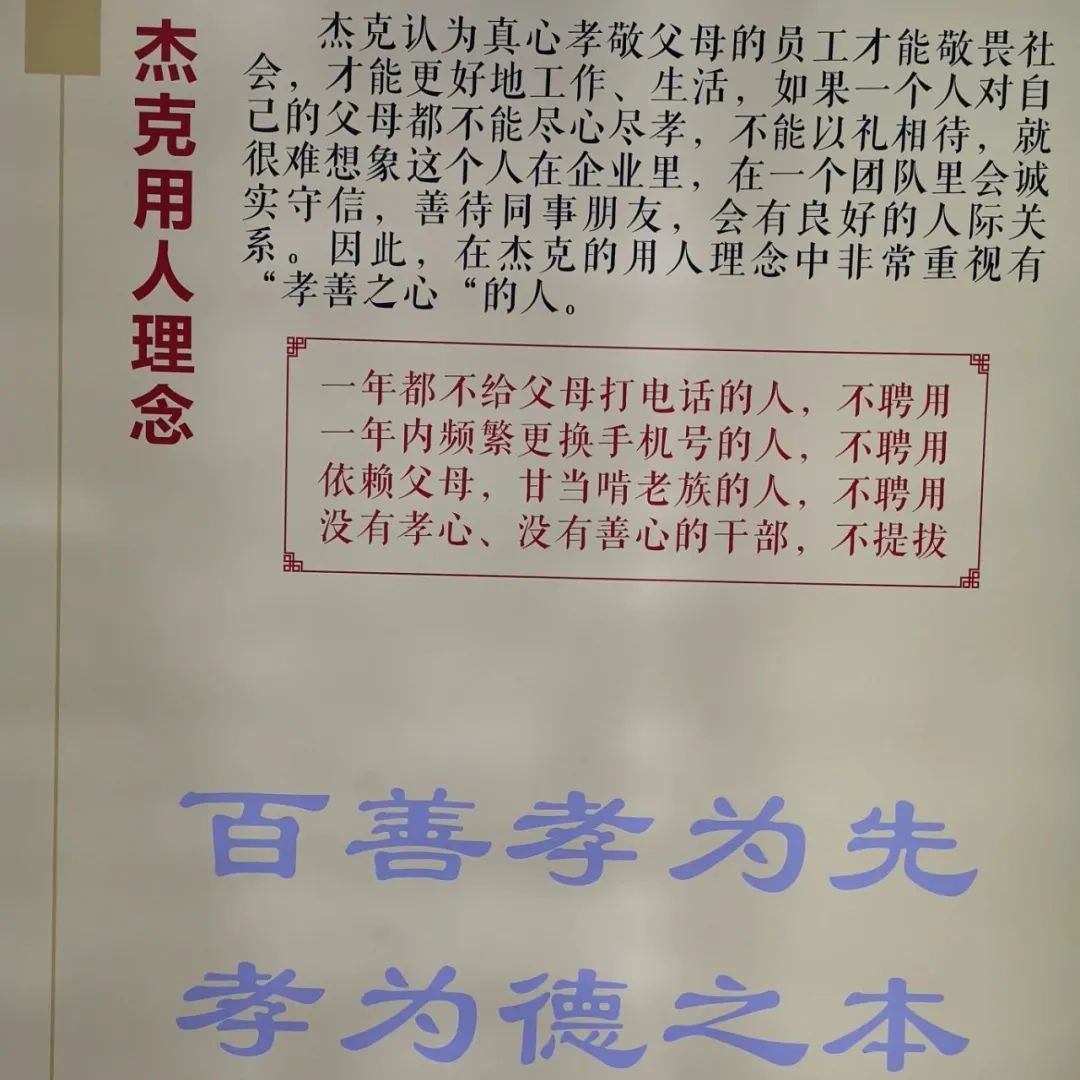 杰克用人理念
杰克认为真心孝敬父母的员工才能敬畏社
会，才能更好地工作、生活，如果一个人对自
己的父母都不能尽心尽孝，不能以礼相待，就
很难想象这个人在企业里，在一个团队里会诚
实守信，善待同事朋友，会有良好的人际关
系。因此，在杰克的用人理念中非常重视有
“孝善之心“的人。
一年都不给父母打电话的人，不聘用
一年内频繁更换手机号的人，不聘用
依赖父母，甘当啃老族的人，不聘用
没有孝心、没有善心的干部，不提拔
百善孝为先
孝为德之本